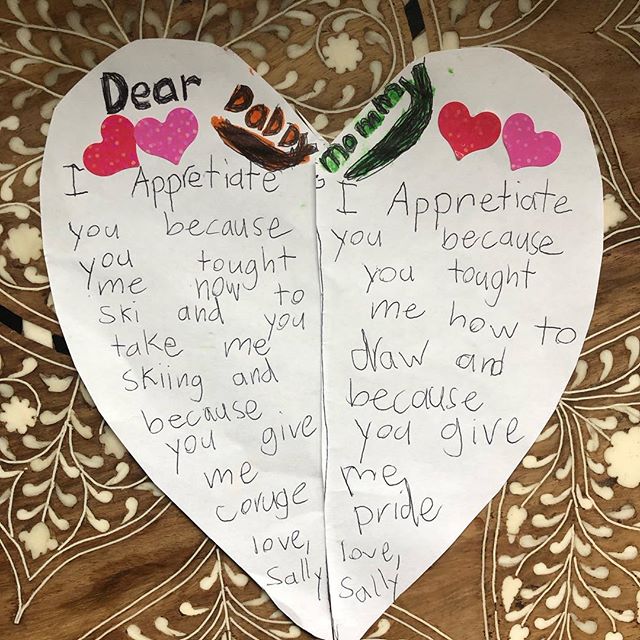 Dear
DADDY
I Appretiate
you because
you tought
me now to
ski and you
take me
skiing and
because
you give
me
coruge
love,
Sally
mommy
I Appretiate
you because
you tought
me how to
draw and
because
you give
me,
pride
love,
Sally